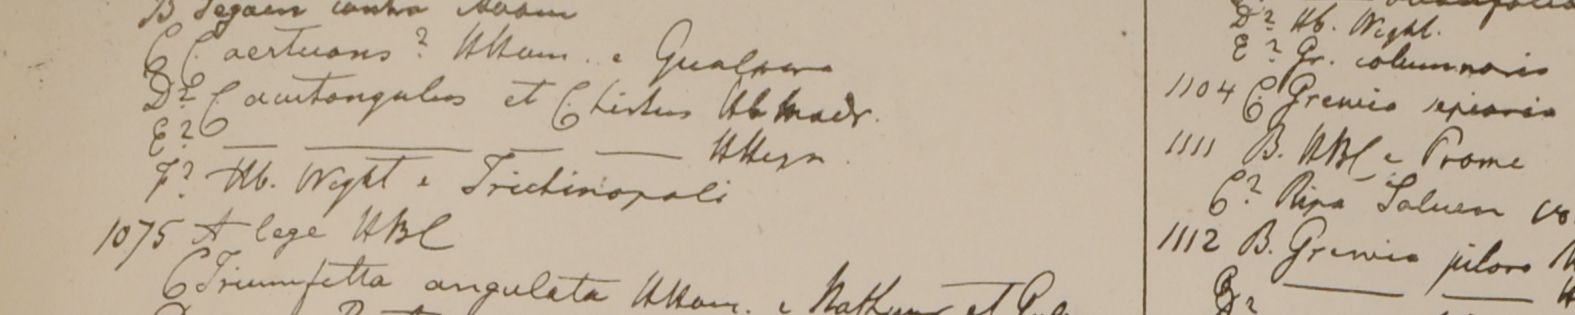 B
C C aestuans? HHam. e Gualpara
D? C acutangulus et C hirtus Hb Madr.
E? — — — — HHeyn.
F? Hb. Wight e Trichinopoli
1075 A lege HBC
C Triumfetta angulata HHam. e et
D? Hb. Wight.
E? Gr. columnaris
1104 C Grewia sepiaria
1111 B. HBC e Prome
C? Ripa Saluen
1112 B. Grewia pilosa
D?